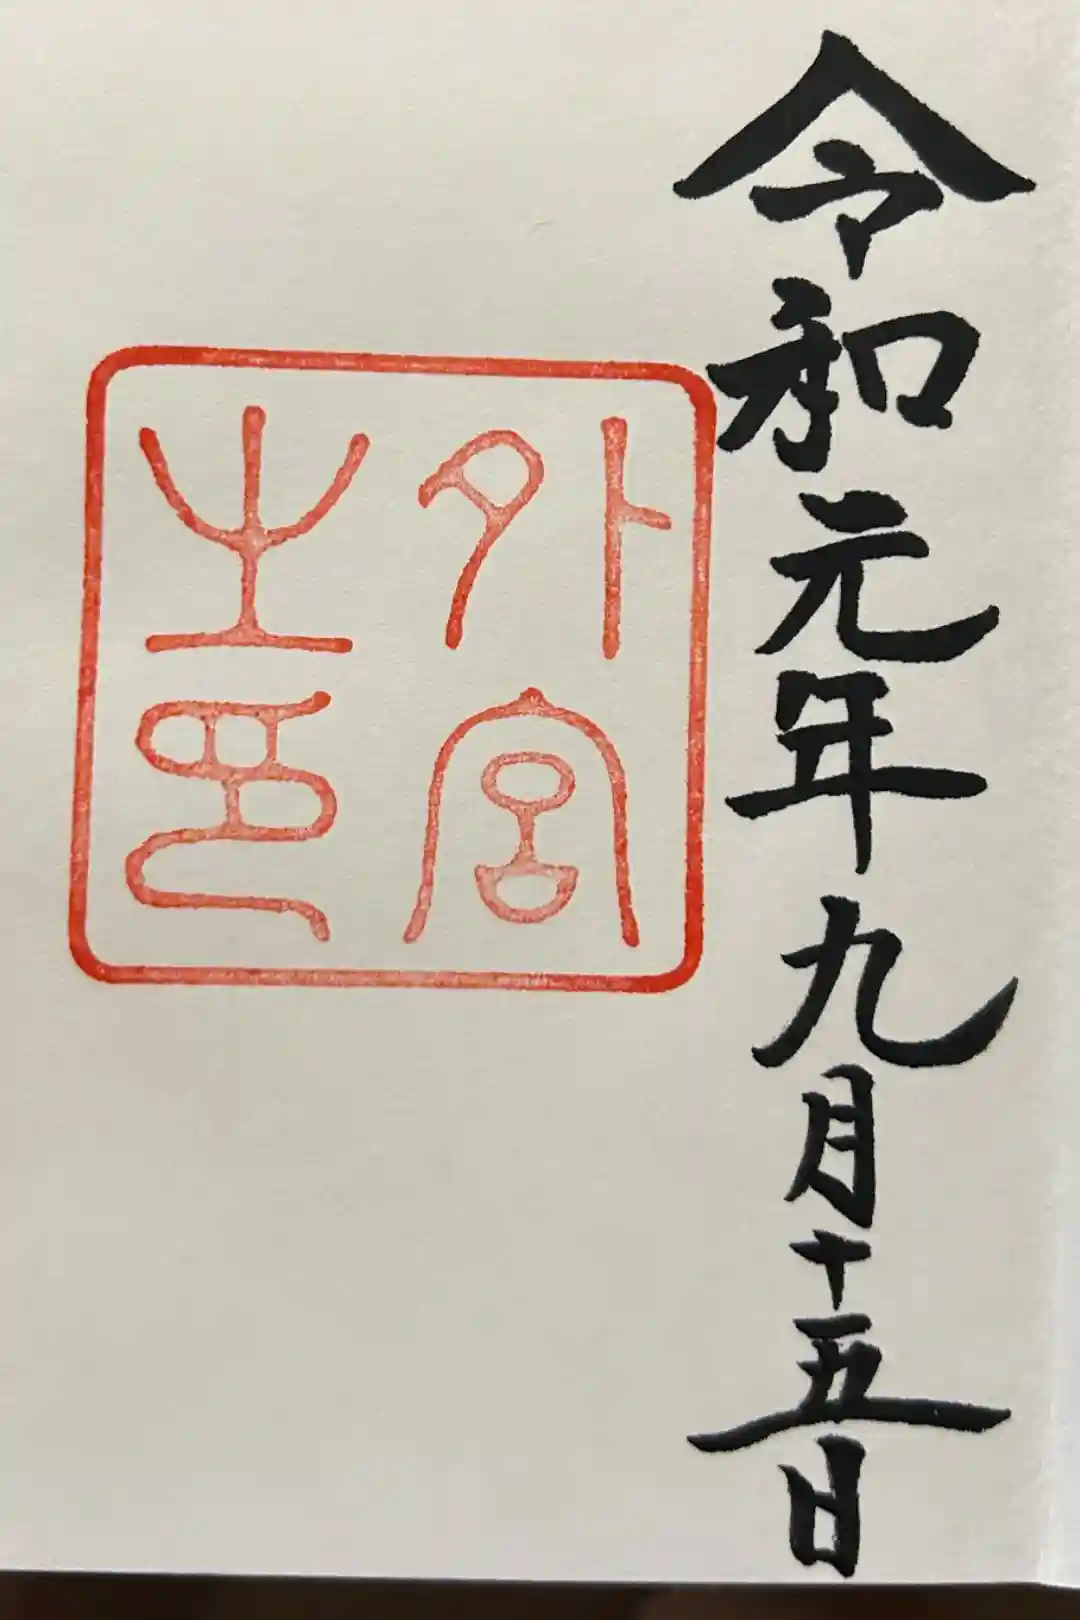 令和元年九月十五日
外宮
之印